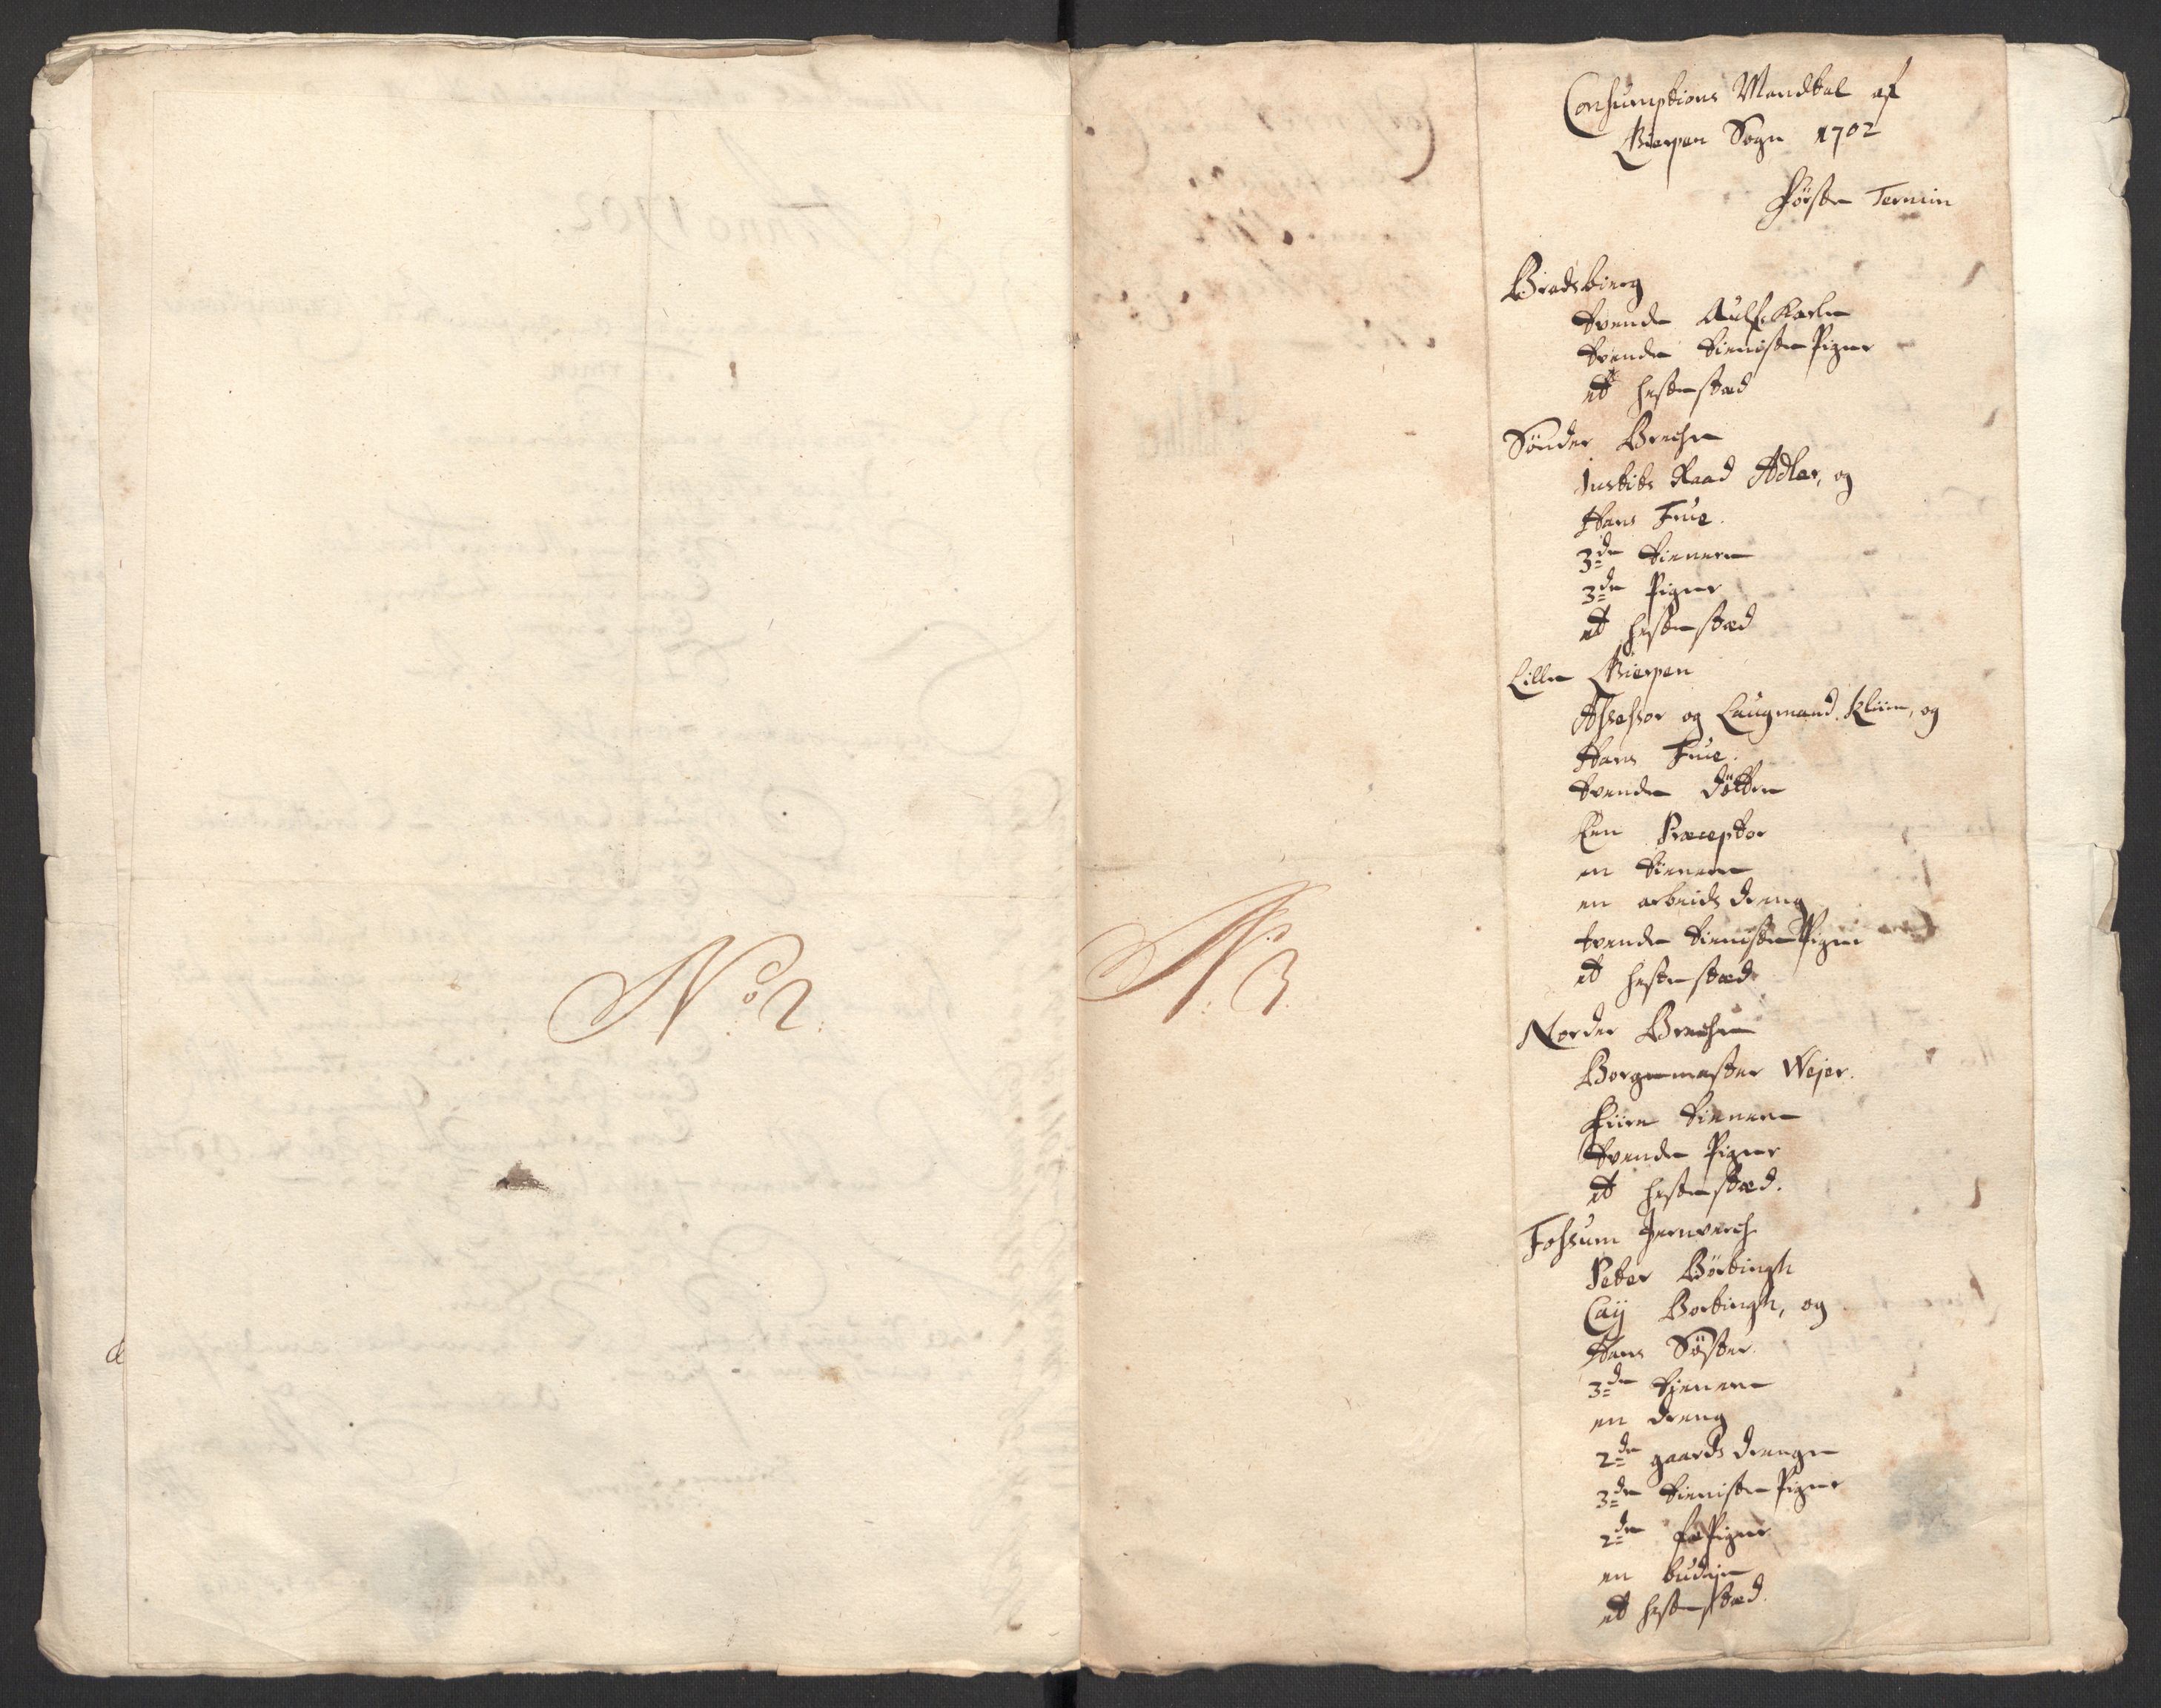 No 2.
No 3.
Consumptions Mandtal af
Gierpen Sogn 1702
Første Termin
Bradsbierg
tvende Aulfs Karle
tvende tieniste Piger
et hestestæd
Sønder Brechе
Justits Raad Adler, og
Hans Frue.
3de tienere
3de Piger
et hestestæd
Lille Gierpen
Assessor og Laugmand Kliim, og
Hans Frue.
tvende døttre
Een Præceptor
en tienere
en arbeids dreng
tvende tieniste Piger
et hestestæd
Norder Breche
Borgemester Wejer.
Fiire tienere
tvende Piger
et hestestæd.
Fossum Jernverch
Peter Börtingh
Caij Bortingh, og
Hans Søster.
3de tjenere
en dreng
2de gaards drenge
3de tieniste Piger
2de fæPiger
en budeje
et hestestæd.